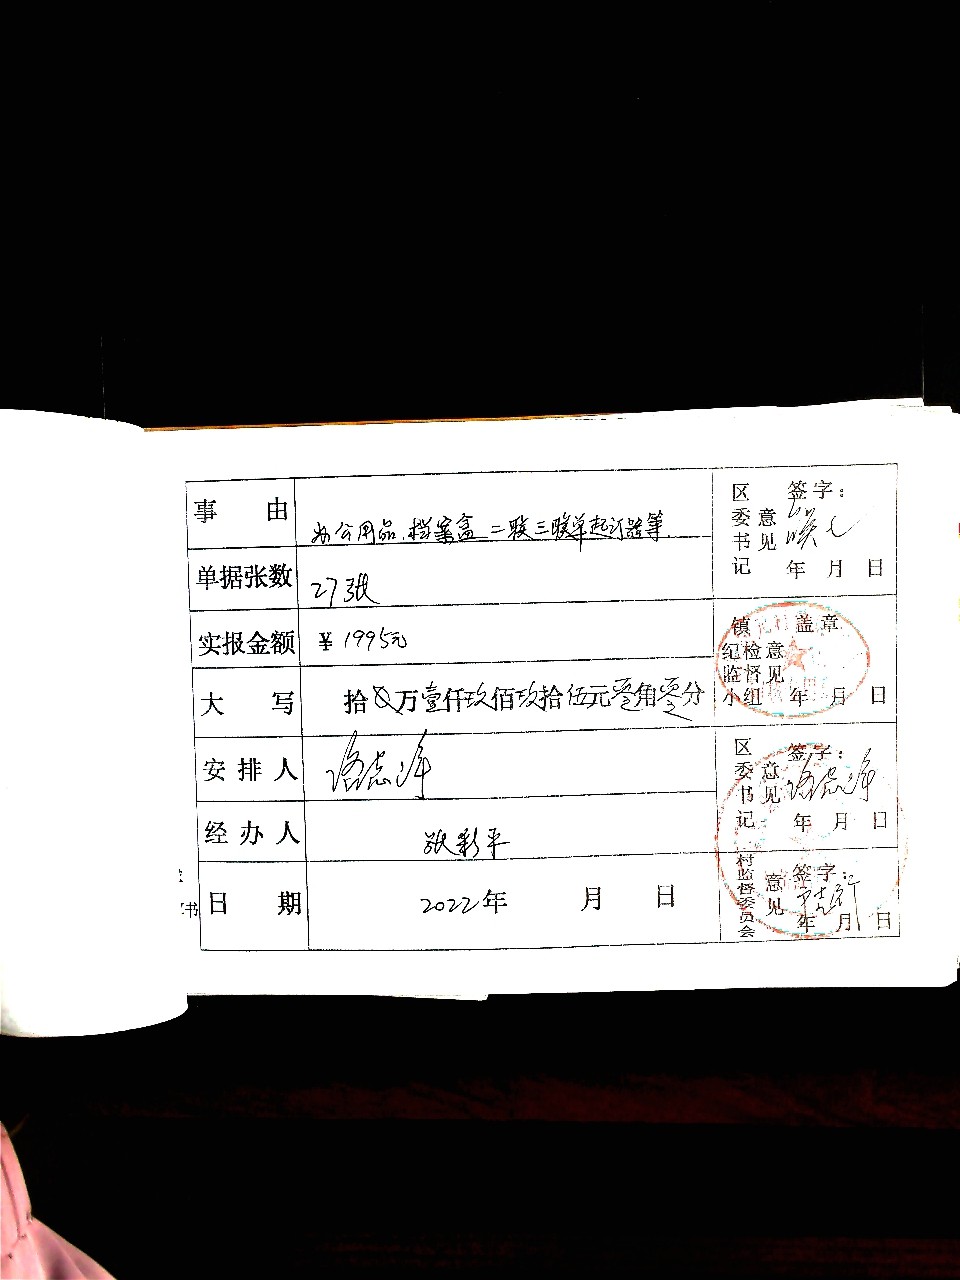 事 由 办公用品.档案盒 二联三联单起订器等.
单据张数 27张
实报金额 ¥ 1995元
大 写 拾 万壹仟玖佰玖拾伍元零角零分
安排人
经办人 张彩平
日 期 2022年 月 日
区委书记意见 签字:
年 月 日
镇纪检监督小组意见 盖章
年 月 日
区委书记意见 签字:
年 月 日
村监督委员会意见 签字:
年 月 日
书